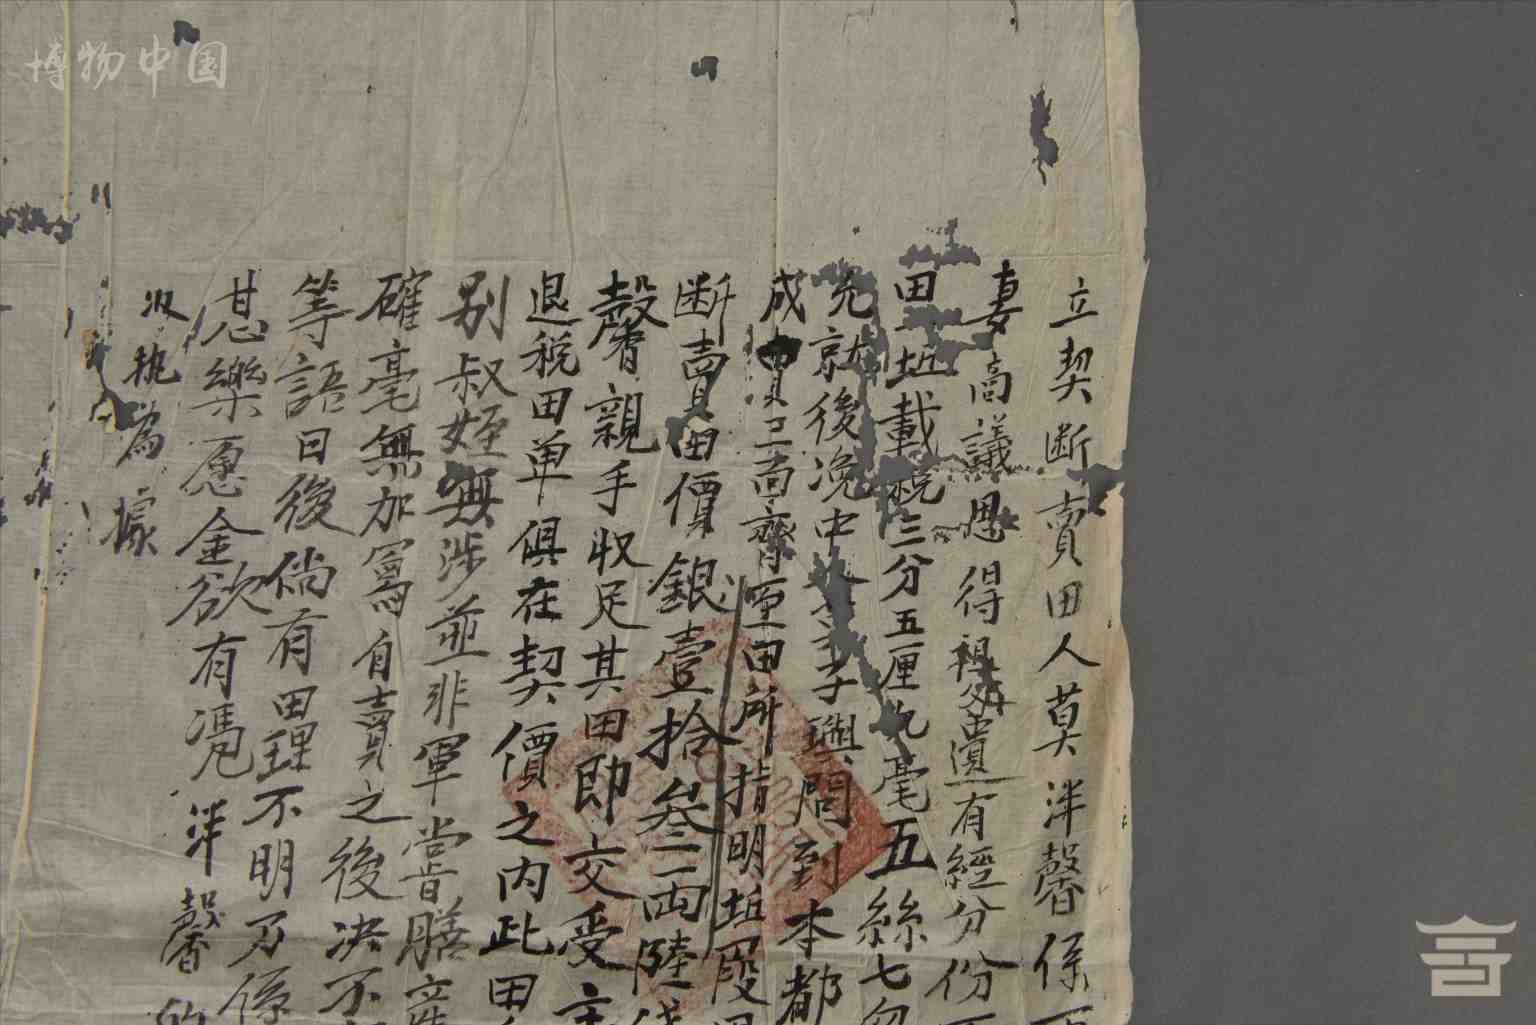 博物中国
立契断賣田人莫泮馨係
妻啇議思得祖父遺有經分份
田坵載税三分五厘九毫五絲七忽
先就後浼中 子輿問到本都
成 三面齊至田所指明坵段
断賣田價銀壹拾叁両陸
馨親手収足其田即交受主
退税田单俱在契價之内此田
别叔姪無涉並非軍嘗膳
確毫無加寫自賣之後决不
等語日後倘有田理不明乃係
甚樂愿金欲有凴泮馨的
収执為據